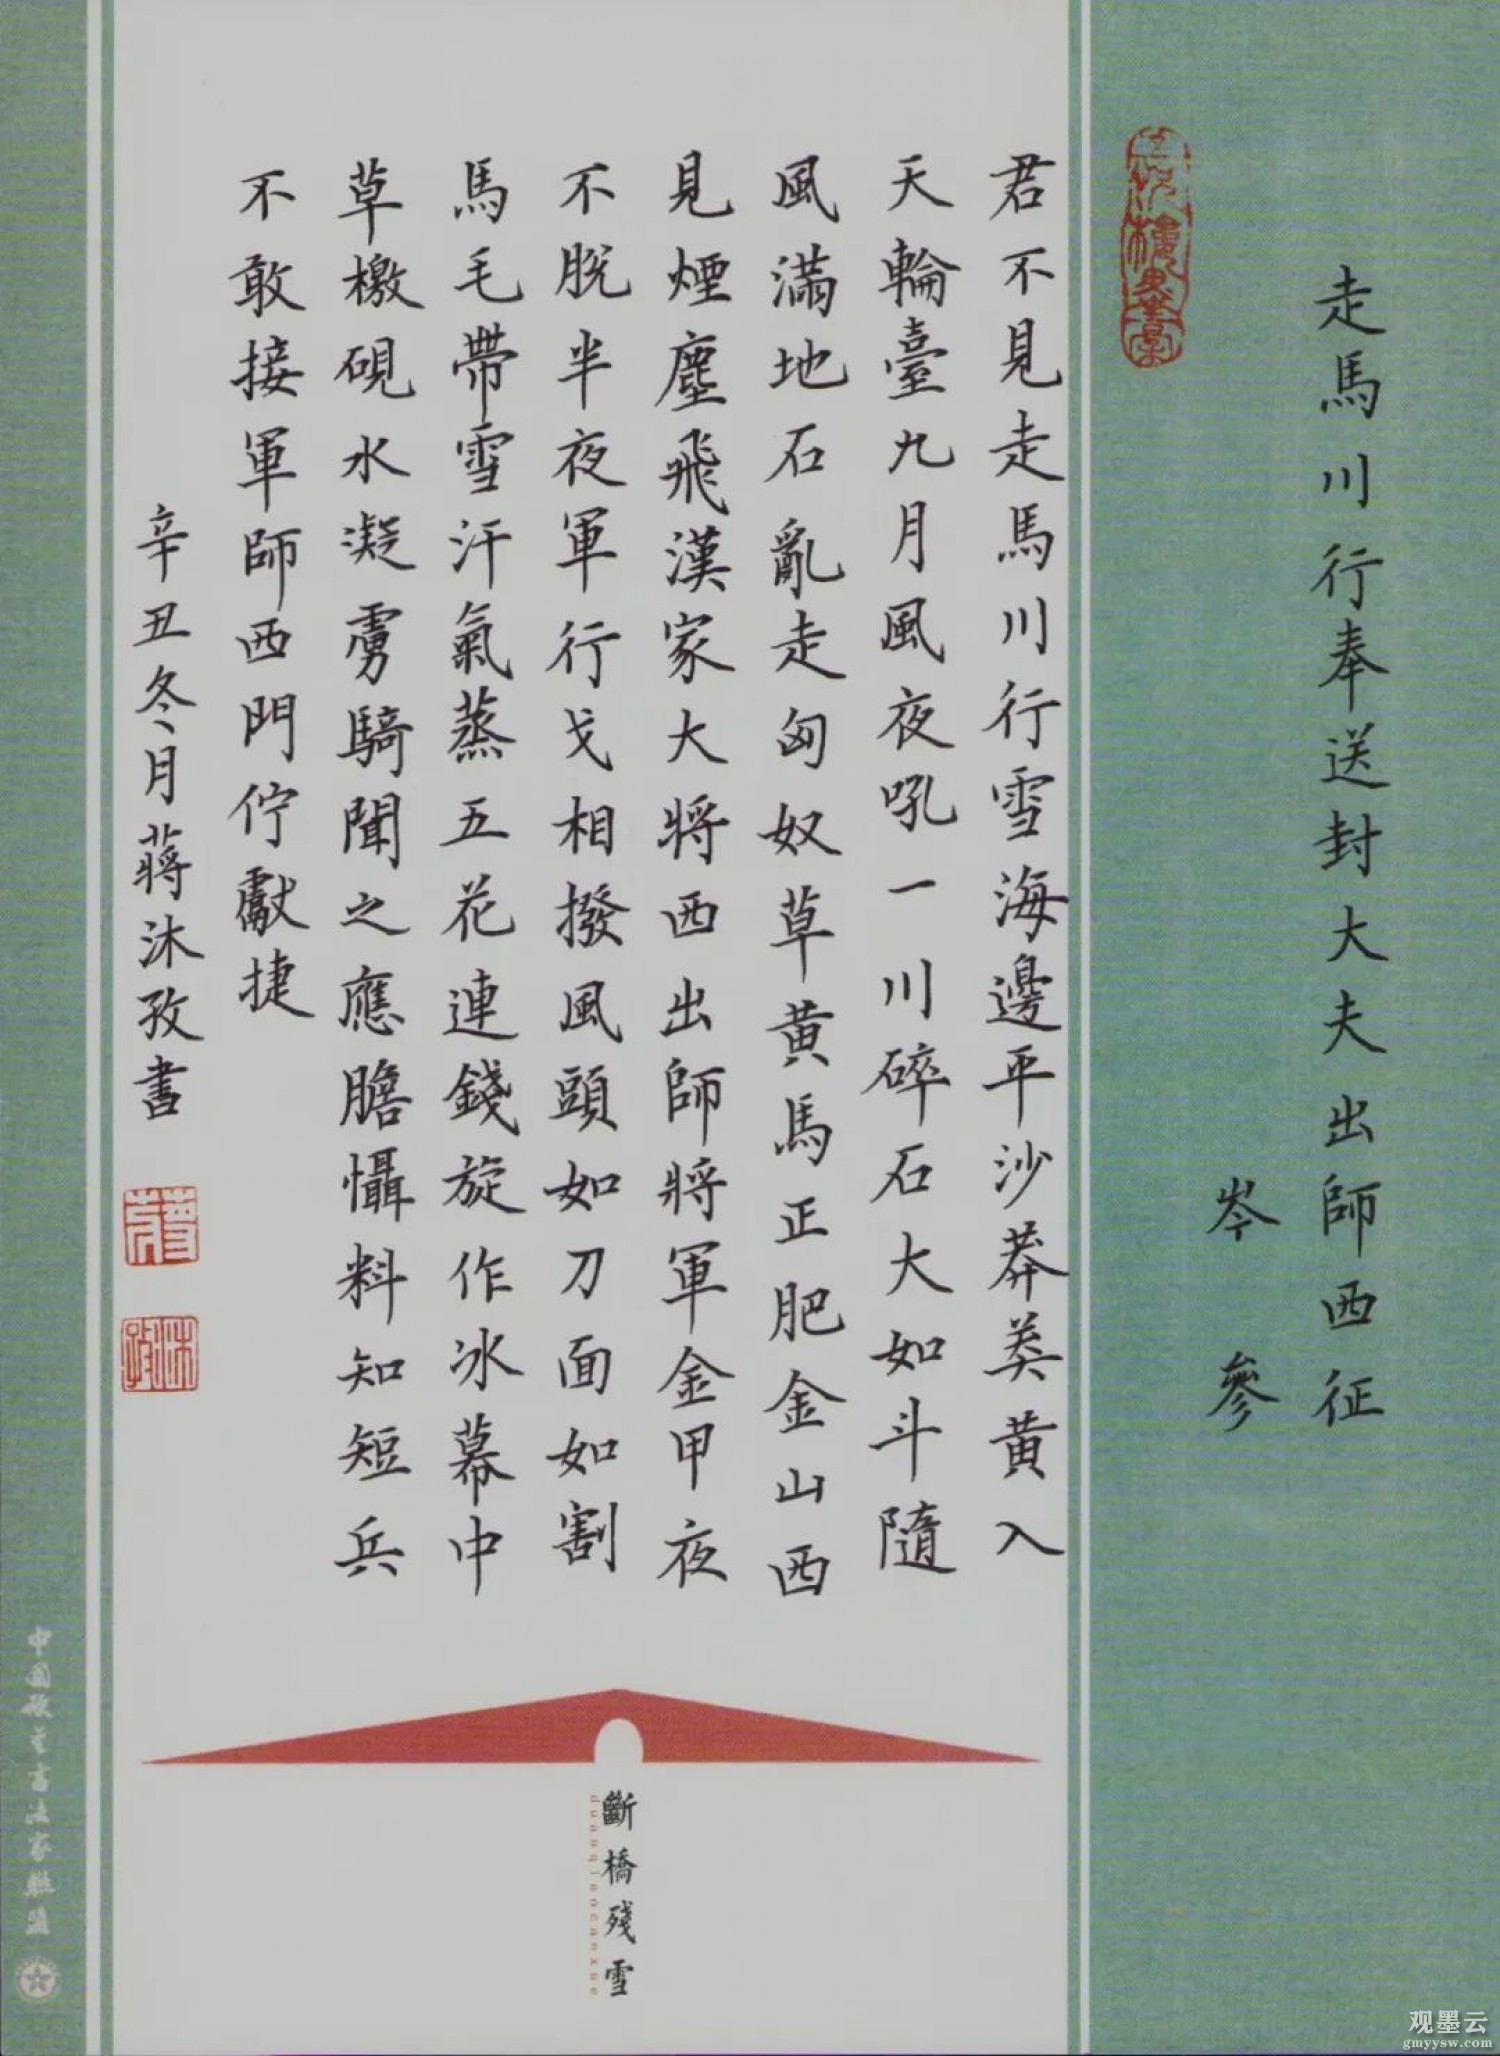 走馬川行奉送封大夫出師西征
岑參
君不見走馬川行雪海邊平沙莽莽黃入
天輪臺九月風夜吼一川碎石大如斗隨
風滿地石亂走匈奴草黃馬正肥金山西
見煙塵飛漢家大將西出師將軍金甲夜
不脫半夜軍行戈相撥風頭如刀面如割
馬毛帶雪汗氣蒸五花連錢旋作冰幕中
草檄硯水凝虜騎聞之應膽懾料知短兵
不敢接軍師西門佇獻捷
辛丑冬月蔣沐孜書
沐孜
斷橋殘雪
duanqiaocanxue
中国硬筆書法家聯盟
观墨云
gmyysw.com